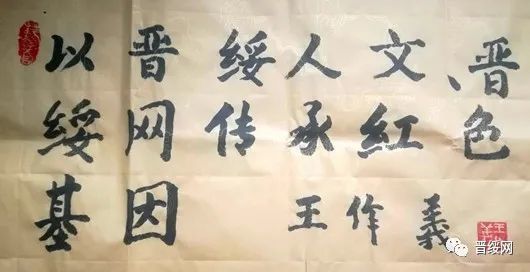 以晋绥人文、晋
绥网传承紅色
基因 王作義
晋绥网